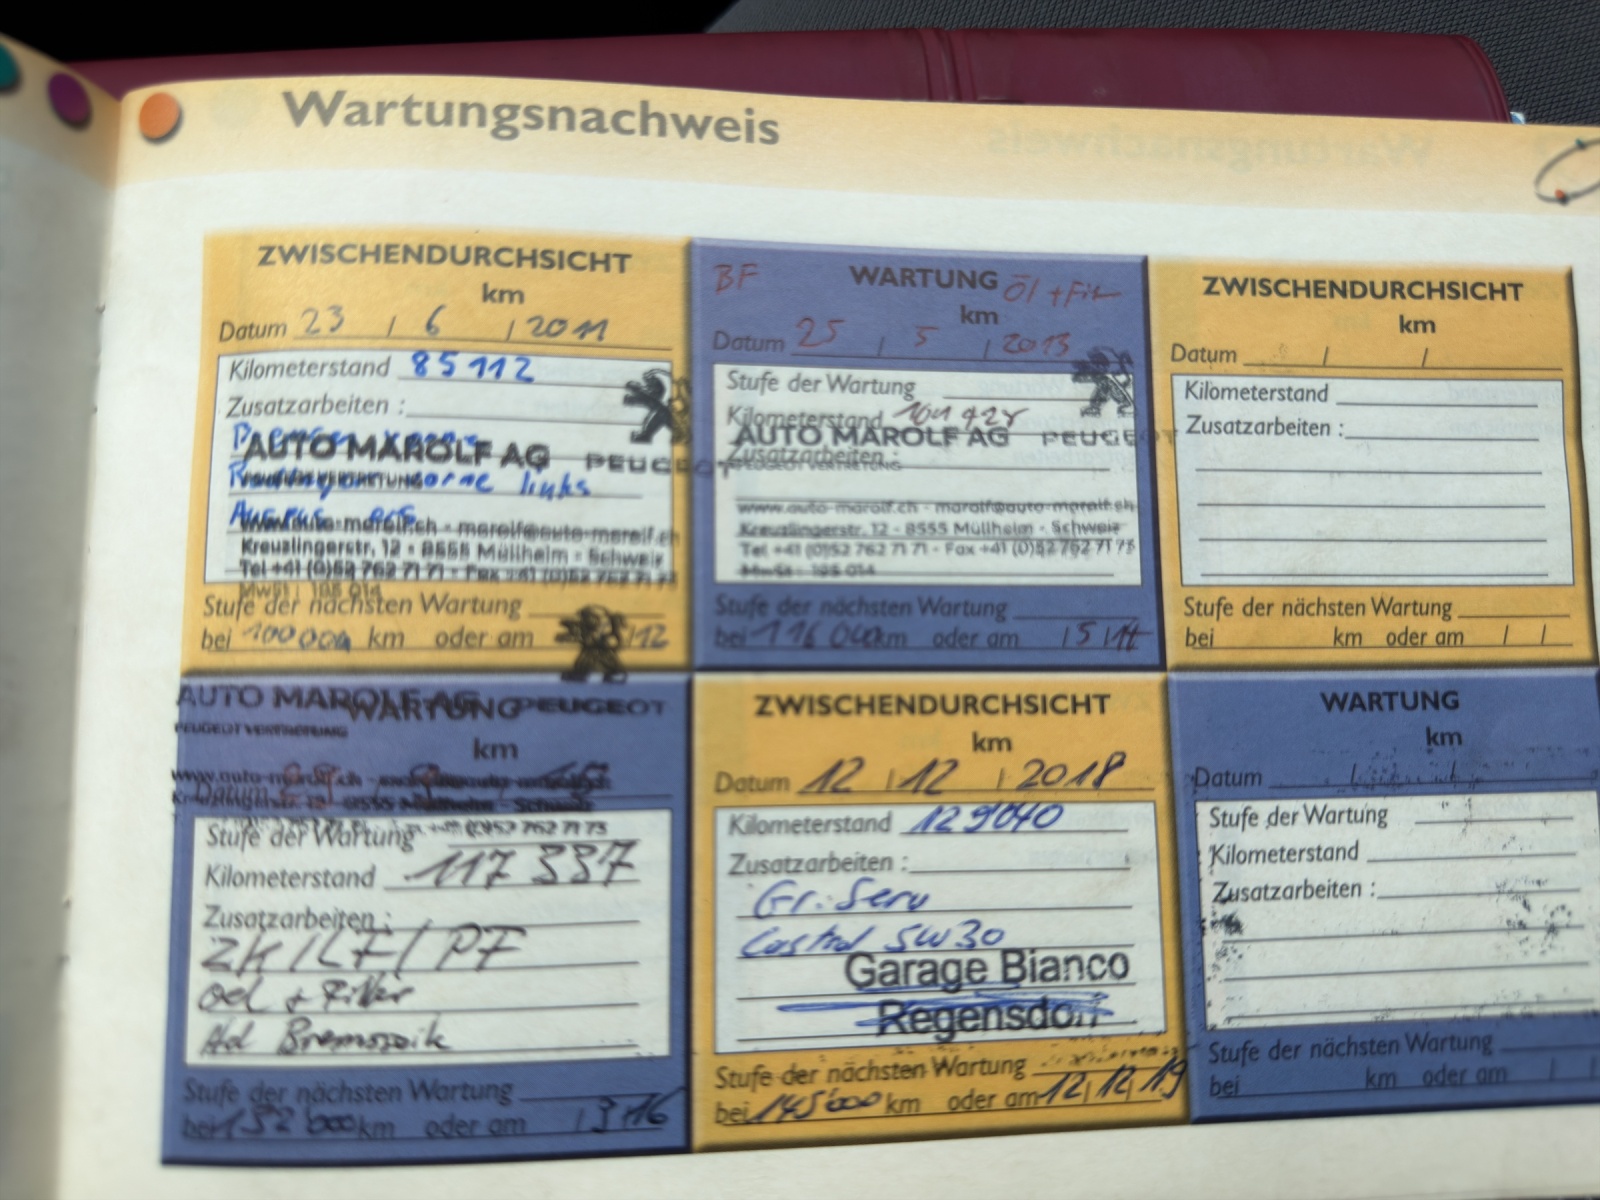 Wartungsnachweis
ZWISCHENDURCHSICHT
km
Datum 23 / 6 / 2011
Kilometerstand 85112
Zusatzarbeiten :
AUTO MAROLF AG PEUGEOT
PEUGEOT VERTRETUNG
vorne links
www.auto-marolf.ch - marolf@auto-marolf.ch
Kreuzlingerstr. 12 - 8555 Müllheim - Schweiz
Tel +41 (0)52 762 71 71 - Fax +41 (0)52 762 71 73
MwSt : 195 014
Stufe der nächsten Wartung
bei 100 000 km oder am /12
BF WARTUNG Öl + Filt
km
Datum 25 / 5 / 2013
Stufe der Wartung
Kilometerstand
AUTO MAROLF AG PEUGEOT
Zusatzarbeiten :
PEUGEOT VERTRETUNG
www.auto-marolf.ch - marolf@auto-marolf.ch
Kreuzlingerstr. 12 - 8555 Müllheim - Schweiz
Tel +41 (0)52 762 71 71 - Fax +41 (0)52 762 71 73
MwSt : 195 014
Stufe der nächsten Wartung
bei 116 000 km oder am / 5 / 14
ZWISCHENDURCHSICHT
km
Datum / /
Kilometerstand
Zusatzarbeiten :
Stufe der nächsten Wartung
bei km oder am / /
AUTO MAROLF AG PEUGEOT
WARTUNG
PEUGEOT VERTRETUNG
km
www.auto-marolf.ch
Datum 15
Kreuzlingerstr. 12 - 8555 Müllheim - Schweiz
Stufe der Wartung
Kilometerstand 117 337
Zusatzarbeiten :
ZK / LF / PF
Oel + Filter
Stufe der nächsten Wartung
bei 132'000 km oder am / 3 / 16
ZWISCHENDURCHSICHT
km
Datum 12 / 12 / 2018
Kilometerstand 129040
Zusatzarbeiten :
Gr. Serv
Castrol 5W30
Garage Bianco
Regensdorf
Stufe der nächsten Wartung
bei 145'000 km oder am 12 / 12 / 19
WARTUNG
km
Datum / /
Stufe der Wartung
Kilometerstand
Zusatzarbeiten :
Stufe der nächsten Wartung
bei km oder am / /